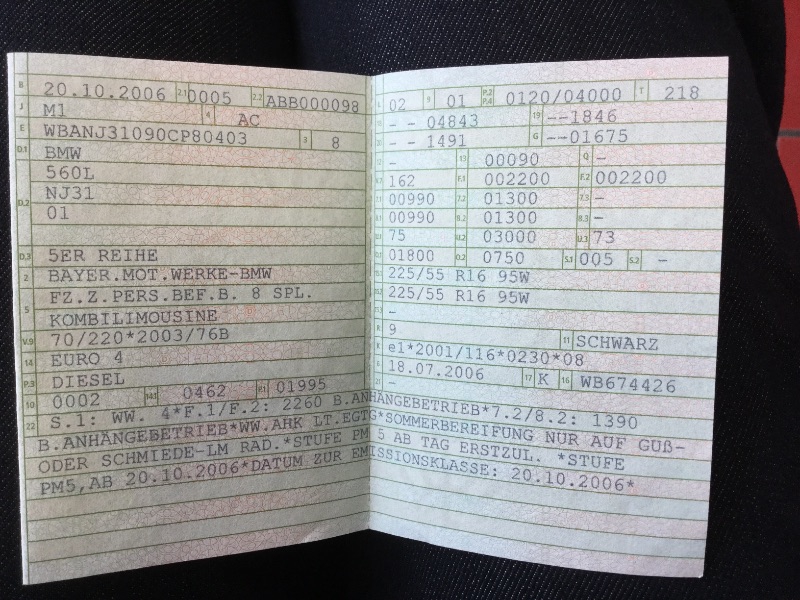 B 20.10.2006 2.1 0005 2.2 ABB000098
J M1 4 AC
E WBANJ31090CP80403 3 8
D.1 BMW
560L
D.2 NJ31
01
D.3 5ER REIHE
2 BAYER.MOT.WERKE-BMW
5 FZ.Z.PERS.BEF.B. 8 SPL.
KOMBILIMOUSINE
V.9 70/220*2003/76B
14 EURO 4
P.3 DIESEL
10 0002 14.1 0462 P.1 01995
L 02 9 01 P.2 P.4 0120/04000 T 218
18 - - 04843 19 --1846
20 - - 1491 G --01675
- 13 00090 Q -
V.7 162 F.1 002200 F.2 002200
7.1 00990 7.2 01300 7.3 -
8.1 00990 8.2 01300 8.3 -
U.1 75 U.2 03000 U.3 73
O.1 01800 O.2 0750 S.1 005 S.2 -
15.1 225/55 R16 95W
15.2 225/55 R16 95W
15.3 -
R 9 11 SCHWARZ
K e1*2001/116*0230*08
6 18.07.2006 17 K 16 WB674426
21 -
22 S.1: WW. 4*F.1/F.2: 2260 B.ANHÄNGEBETRIEB*7.2/8.2: 1390
B.ANHÄNGEBETRIEB*WW.AHK LT.EGTG*SOMMERBEREIFUNG NUR AUF GUß-
ODER SCHMIEDE-LM RAD.*STUFE PM 5 AB TAG ERSTZUL. *STUFE
PM5,AB 20.10.2006*DATUM ZUR EMISSIONSKLASSE: 20.10.2006*